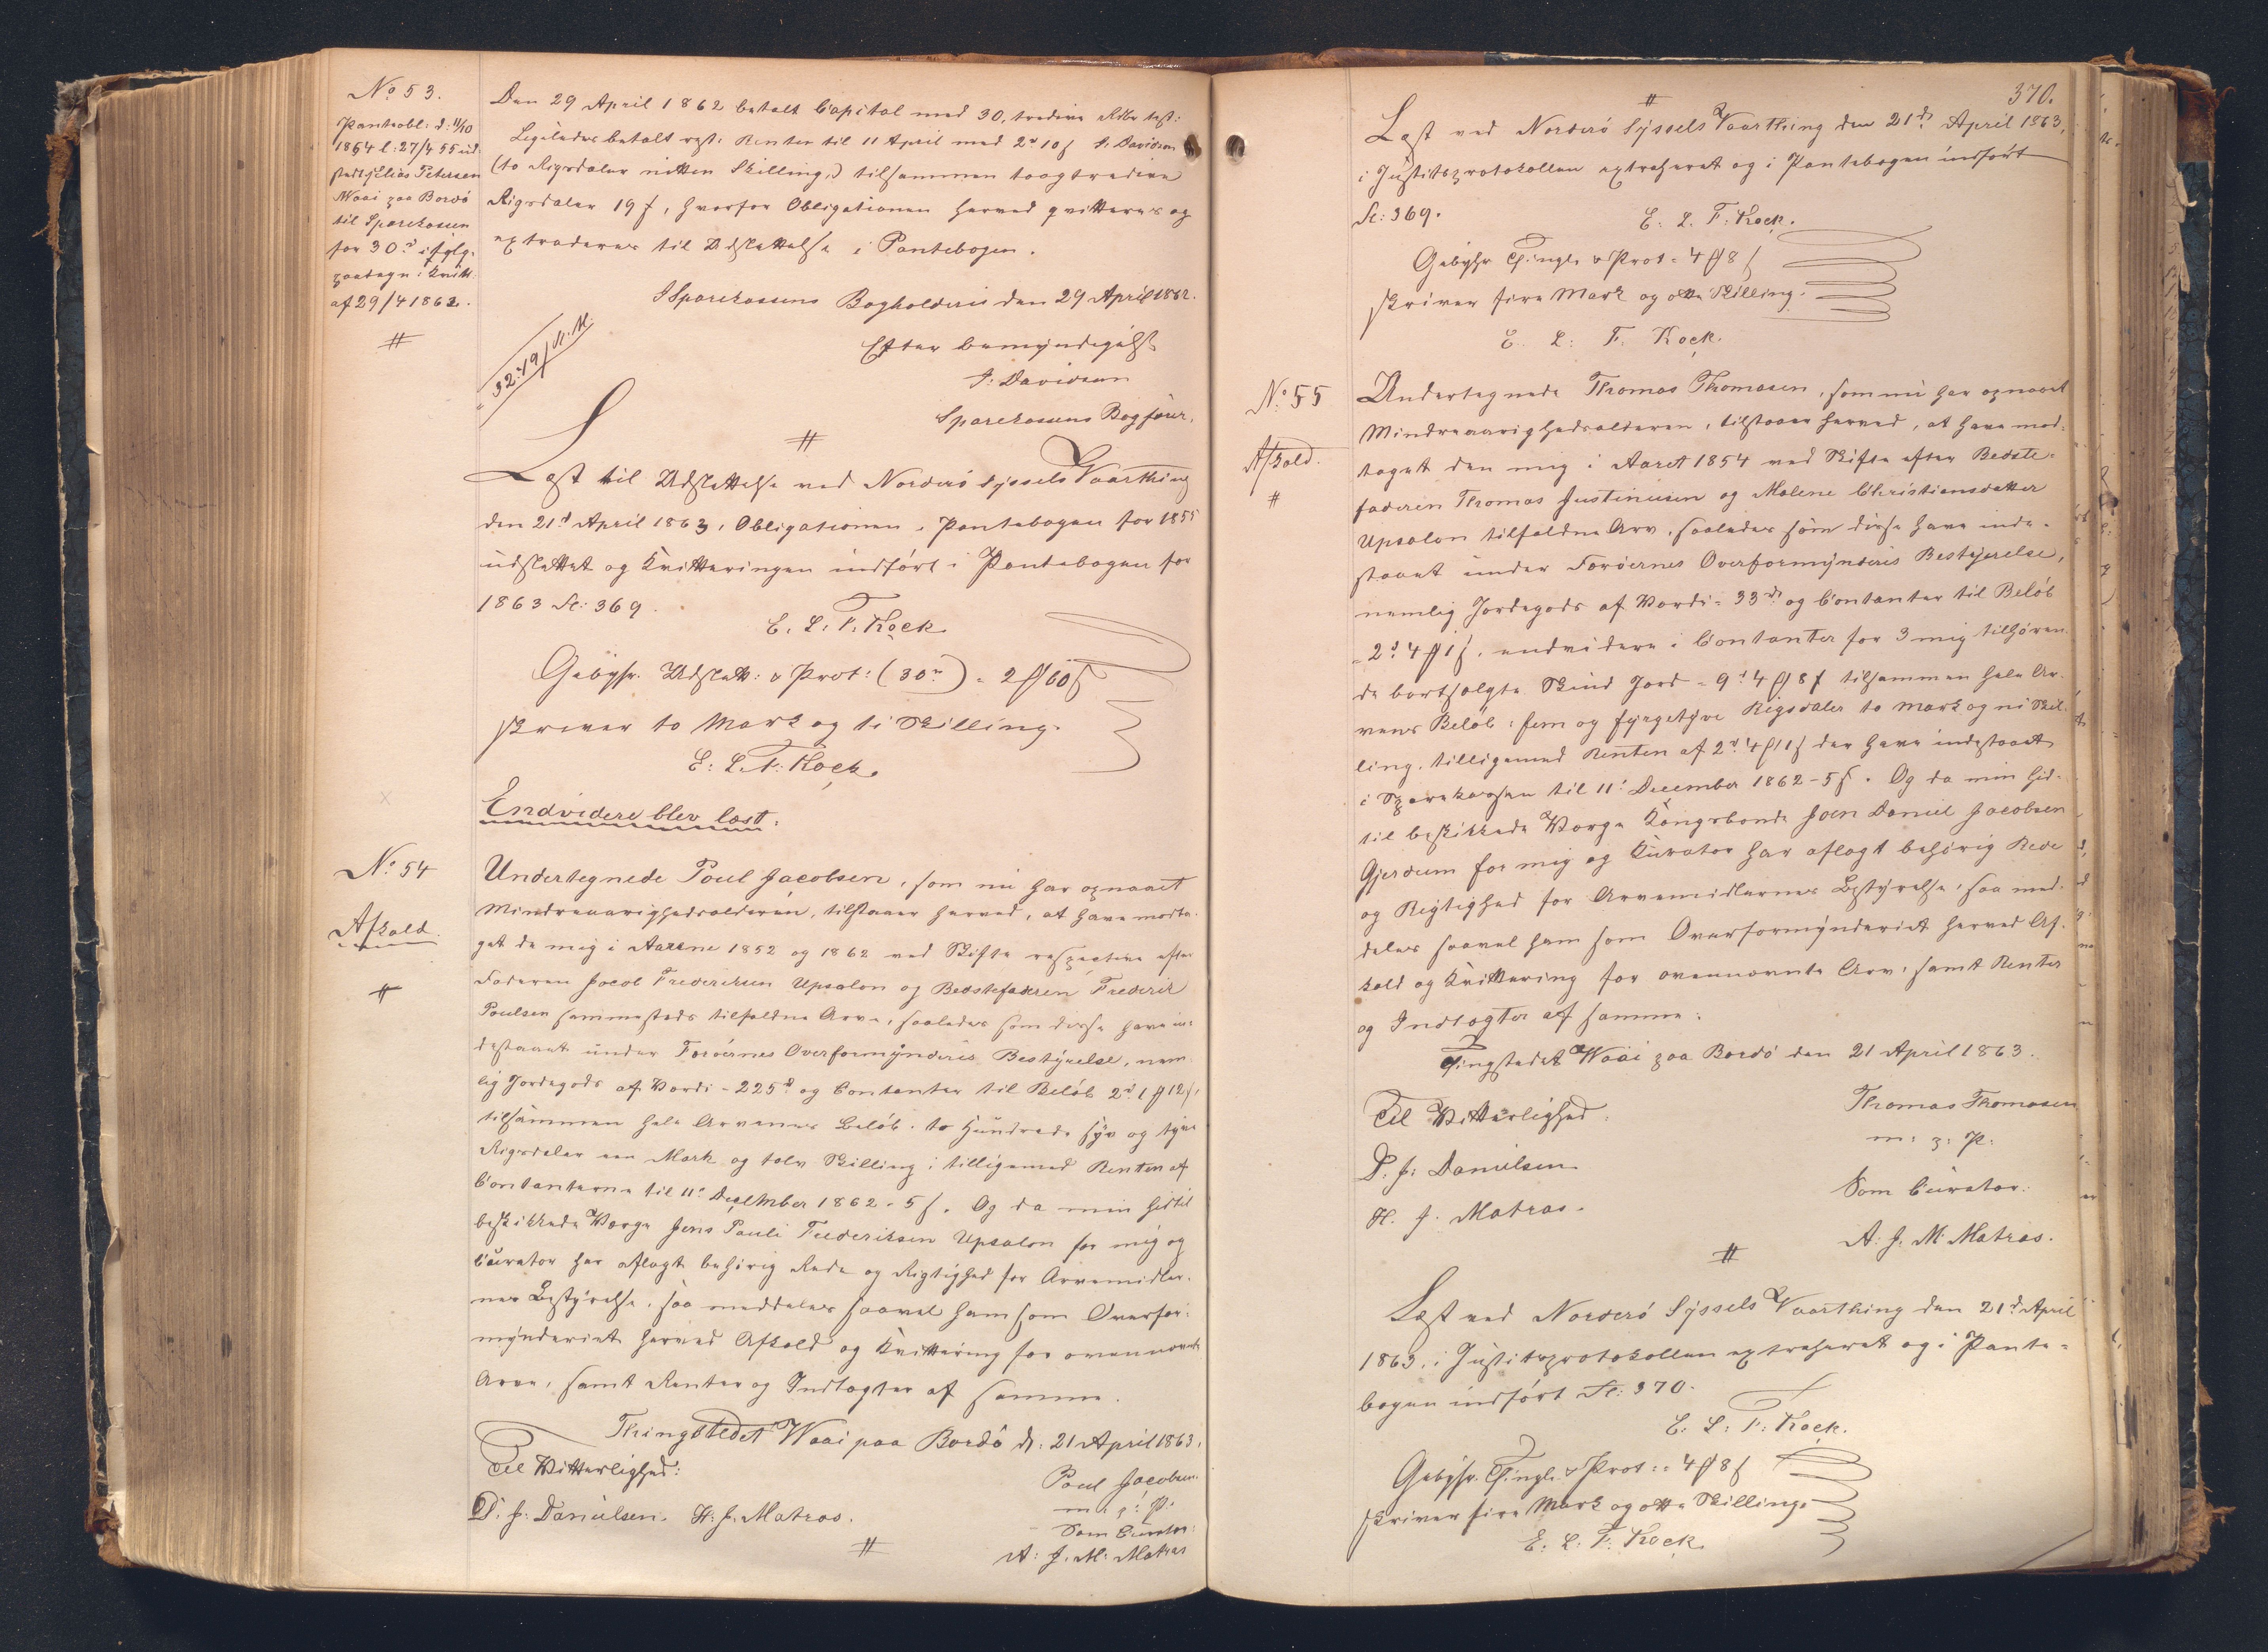 No 53.
Panteobl: d: 11/10
1854 l: 27/4 55 ud-
stedt af Elias Petersen
Waai paa Bordø
til Sparekassen
for 30 rd ifølg.
paategn: Kvitt.
af 29/4 1862.
#
Den 29 April 1862 betalt Capital med 30, tredive Rdlr rest:
Ligeledes betalt rest: Renter til 11 April med 2 rd 19 ß J. Davidsen
(to Rigsdaler nitten Skilling,) tilsammen toogtredive
Rigsdaler 19 ß, hvorfor Obligationen herved qvitteres og
extraderes til Udslettelse i Pantebogen.
I Sparekassens Bogholderie den 29 April 1862.
32. 19 ß R.M.
Efter bemyndigelse
J: Davidsen
Sparekassens Bogfører.
#
Læst til Udslettelse ved Norderø Syssels Vaarthing
den 21d April 1863, Obligationen i Pantebogen for 1855
udslettet og Kvitteringen indført i Pantebogen for
1863 Fl: 369.
E. L. F. Kock
Gebyhr. Udslett: & Prot: (30 rd) = 2 Mk 10 ß
skriver to Mark og ti Skilling.
E: L. F: Kock.
Endvidere blev læst:
No 54
Afkald.
#
Undertegnede Poul Jacobsen, som nu har opnaaet
Mindreaarighedsalderen, tilstaaer herved, at have modta-
get de mig i Aarene 1852 og 1862 ved Skifte respective efter
Faderen Jacob Frederiksen Upsalon og Bedstefaderen Frederik
Poulsen sammesteds tilfaldne Arve, saaledes som disse have in-
destaaet under Færøernes Overformynderis Bestyrelse, nem-
lig Jordegods af Værdi = 225 rd og Contanter til Beløb 2 rd 1 Mk 12 ß,
tilsammen hele Arvenes Beløb: to Hundrede syv og tyve
Rigsdaler een Mark og tolv Skilling; tilligemed Renten af
Contanterne til 11' December 1862 - 5 ß. Og da min hidtil
beskikkede Værge Jens Pauli Frederiksen Upsalon for mig og
Curator har aflagt behørig Rede og Rigtighed for Arvemidler-
nes Bestyrelse, saa meddeles saavel ham som Overfor-
mynderiet herved Afkald og Kvittering for ovennævnte
Arve, samt Renter og Indtægter af samme.
Thingstedet Waai paa Bordø d: 21 April 1863.
Til Vitterlighed:
Poul Jacobsen
m: p: P:
D. J. Danielsen. H: J. Matras.
Som Curator:
#
A: J. M: Matras
370.
#
Læst ved Norderø Syssels Vaarthing den 21d April 1863,
i Justitsprotokollen extraheret og i Pantebogen indført
Fl: 369.
E. L. F: Kock.
Gebyhr Thingl. & Prot = 4 Mk 8 ß
skriver fire Mark og otte Skilling.
E. L: F. Kock.
No 55
Afkald.
#
Undertegnede Thomas Thomasen, som nu har opnaaet
Mindreaarighedsalderen, tilstaaer herved, at have mod-
taget den mig i Aaret 1854 ved Skifte efter Bedste-
faderen Thomas Justinusen og Malene Christiansdatter
Upsalon tilfaldne Arv, saaledes som disse have inde-
staaet under Færøernes Overformynderis Bestyrelse,
nemlig Jordegods af Værdi = 33 rd og Contanter til Beløb
= 2 rd 4 Mk 1 ß, endvidere i Contanter for 3 mig tilhøren-
de bortsolgte Skind Jord = 9 rd 4 Mk 8 ß tilsammen hele Ar-
vens Beløb: fem og fyrgetyve Rigsdaler to Mark og ni Skil-
ling, tilligemed Renten af 2 rd 4 Mk 1 ß der have indestaaet
i Sparekassen til 11' December 1862 - 5 ß. Og da min hid-
til beskikkede Værge Kongsbonde Joen Daniel Jacobsen
Gjerdum for mig og Curator har aflagt behørig Rede
og Rigtighed for Arvemidlernes Bestyrelse, saa med-
deles saavel ham som Overformynderiet herved Af-
kald og Kvittering for ovennævnte Arv, samt Renter
og Indtægter af samme.
Thingstedet Waai paa Bordø den 21 April 1863.
Til Vitterlighed:
Thomas Thomasen
m: p: P:
D. J: Danielsen
Som Curator:
H. J. Matras.
A: J: M: Matras.
#
Læst ved Norderø Syssels Vaarthing den 21d April
1863, i Justitsprotokollen extraheret og i Pante-
bogen indført Fl: 370.
E. L: F: Kock.
Gebyhr. Thingl. & Prot := 4 Mk 8 ß
skriver fire Mark og otte Skilling.
E: L: F: Kock